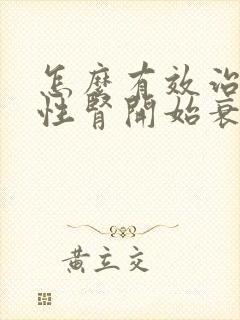 怎麼有效治
性腎開始衰
黃立交